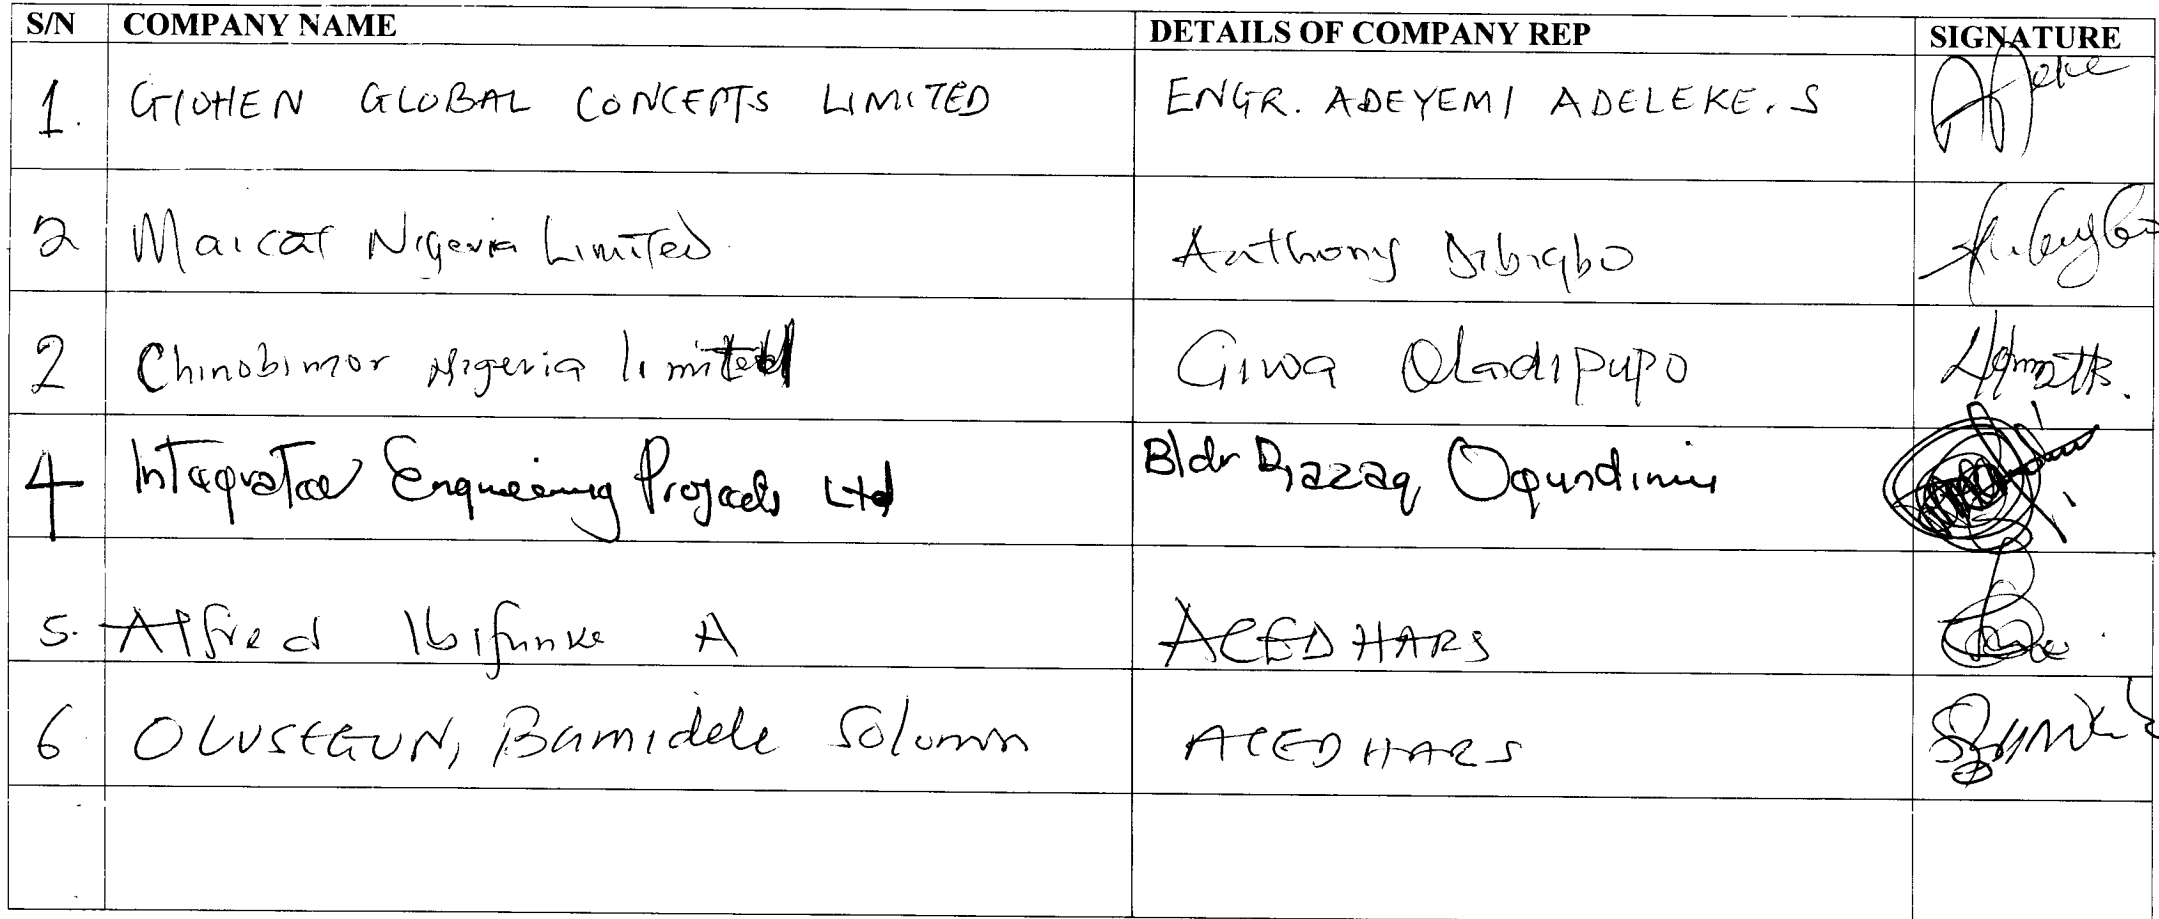 S/N COMPANY NAME DETAILS OF COMPANY REP SIGNATURE
1. GIOHEN GLOBAL CONCEPTS LIMITED ENGR. ADEYEMI ADELEKE. S
2 Maicat Nigeria Limited Anthony Dibigbo
2 Chinobimor Nigeria limited Giwa Oladipupo
4 Integrated Engineering Projects Ltd Bldr Razaq Ogundimu
5. Alfred Ibifunke A ACEDHARS
6 OLUSEGUN, Bamidele Solomon ACEDHARS